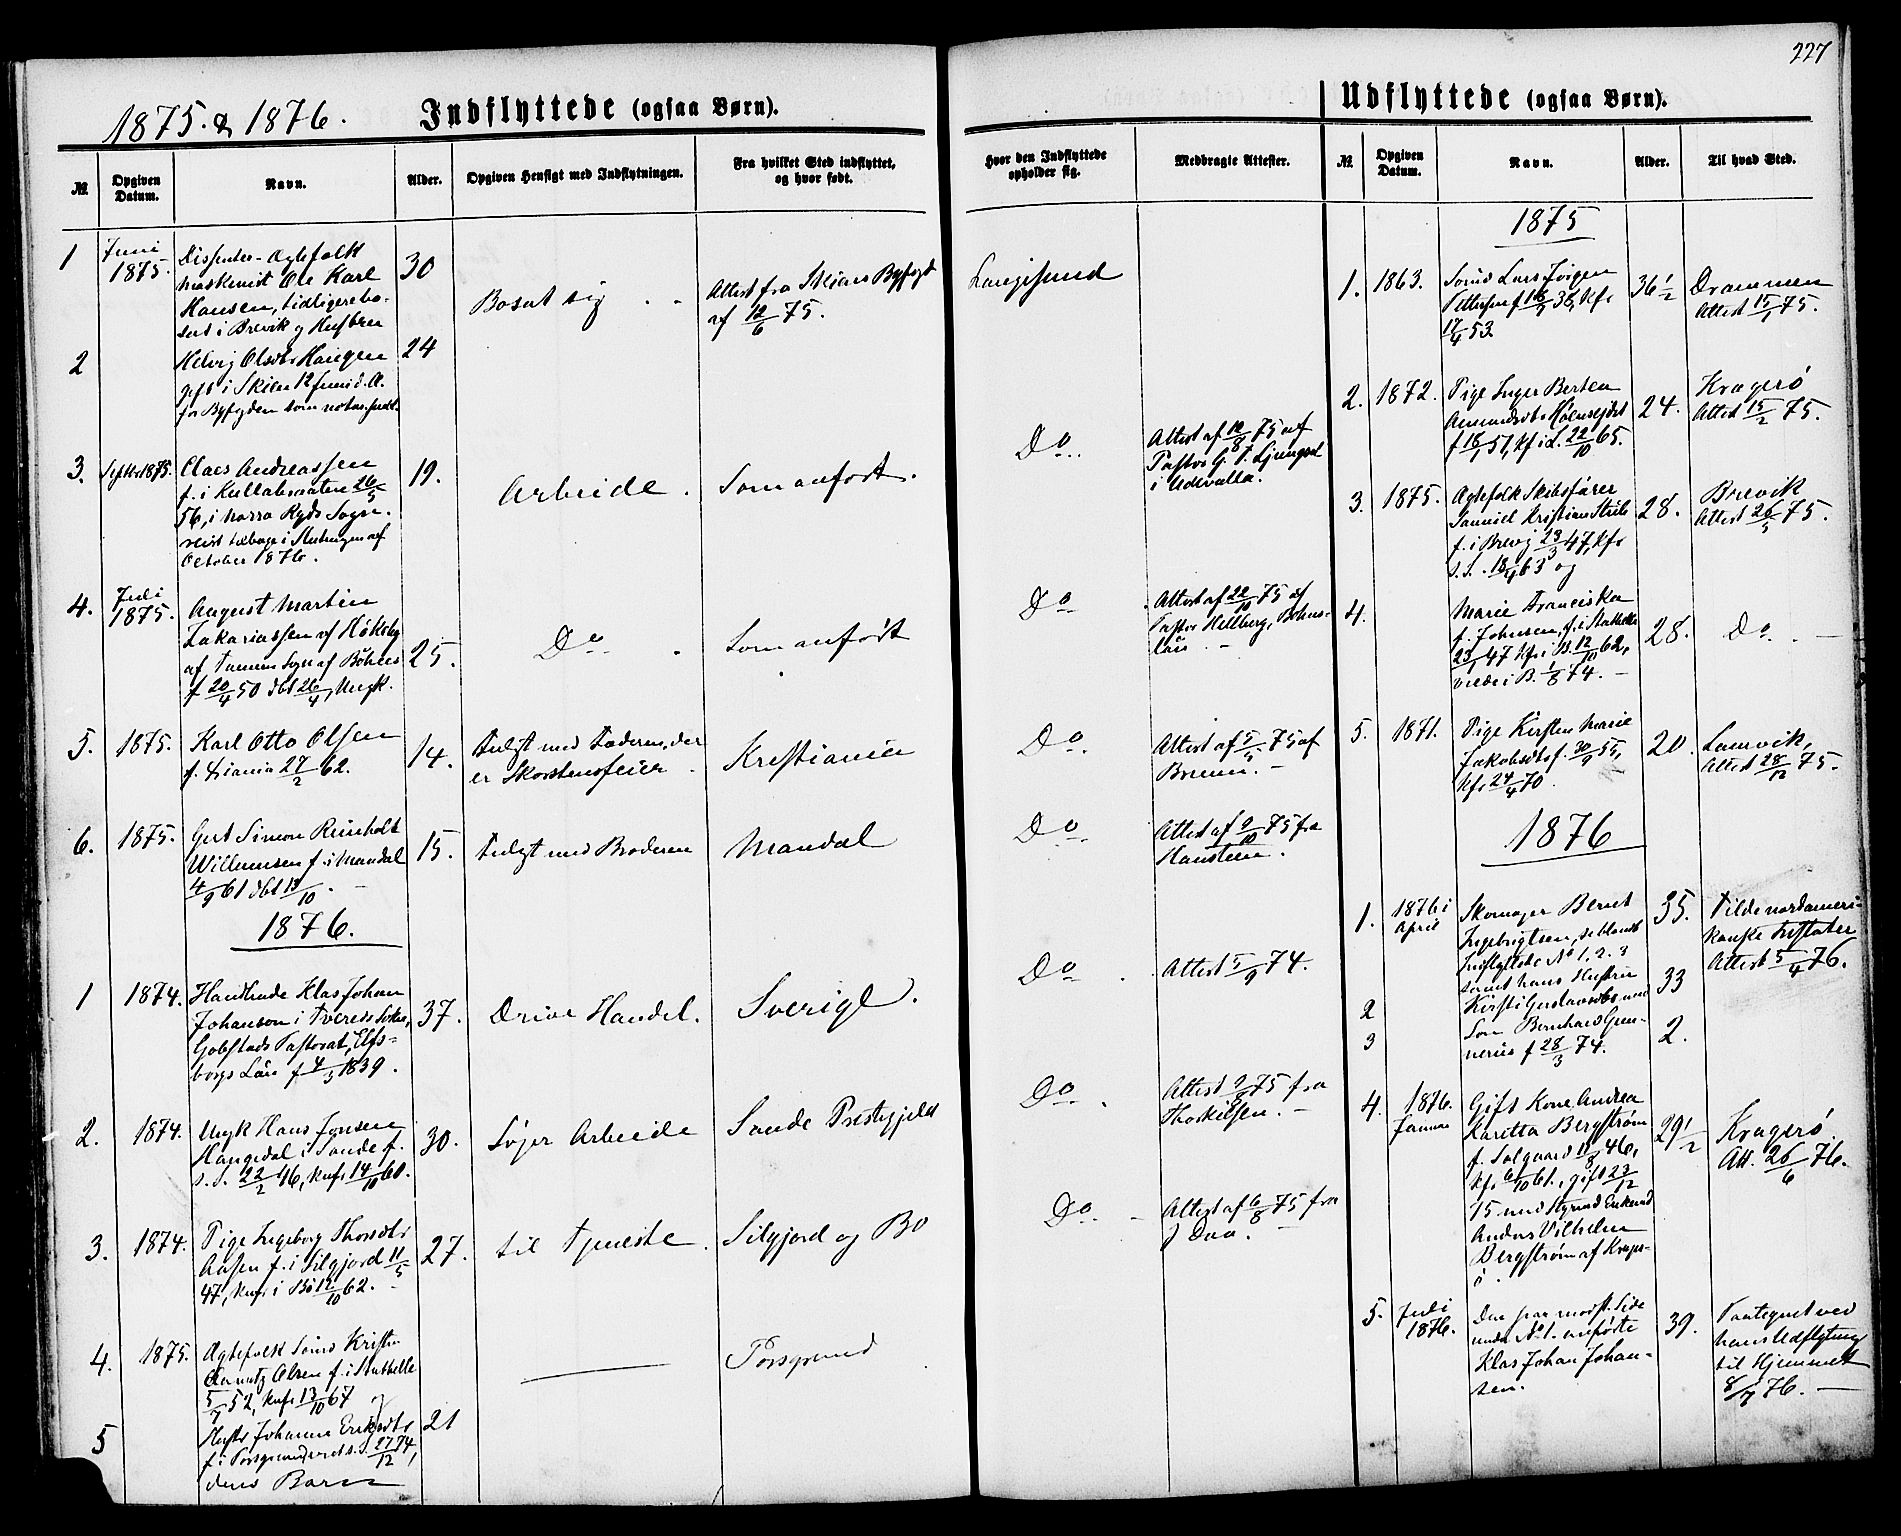 227
1875. & 1876.
Indflyttede (ogsaa Børn).
№
Opgiven Datum.
Navn.
Alder.
Opgiven Hensigt med Indflytningen.
Fra hvilket Sted indflyttet, og hvor født.
Hvor den Indflyttede opholder sig.
Medbragte Attester.
1
Juni
1875.
Dissenter-Ægtefolk
Maskinist Ole Karl
Hansen, tidligere bo-
sat i Brevik og Hustru
30
Bosat sig
Attest fra Skiens Byfogd
af 12/6 75.
Langesund
2
Helvig Olsdtr Haugen
gift i Skien 12 Juni d. A.
for Byfogden som notar. publ.
24
3.
Septbr 1875.
Claes Andreassen
f. i 26/5
56, i Norra Ryds Sogn.
October 1876.
19.
Arbeide.
Som anført.
Do.
Attest af 12/8 75 af
Pastor G. Ljungqvist
i Udevalla.
4.
Juli
1875.
August Martin
Zakariassen af Hökeby
af Tanum Sogn af Bohus
f 20/4 50 dbt 26/4, Ungk.
25.
Do
Som anført
Do
Attest af 22/10 75 af
Pastor Hellberg, Bohus-
län
5.
1875.
Karl Otto Olsen
f. Xiania 27/2 62.
14.
Fulgt med Faderen, der
er Skorstensfeier
Kristiania
Do.
Attest af 5/5 75 af
Bruun.
6.
1875.
Gert Simon Reinholt
Willumsen f. i Mandal
4/9 61 dbt 13/10.
15.
Fulgt med Broderen
Mandal
Do
Attest af 9/10 75 fra
Hansteen.
1876.
1
1874.
Handlende Klas Johan
Johanson i Tvereds Sokn,
Pastorat, Elfs-
borgs Län f 4/3 1839.
37.
Drive Handel.
Sverige.
Do.
Attest 5/9 74.
2.
1874.
Ungk Hans Jonsen
Haugedal i Sande f.
s. S. 22/2 46, konfr 14/10 60.
30.
Søger Arbeide
Sande Prestegjeld
Do.
Attest 9/8 75 fra
Thorkilsen.
3.
1874.
Pige Ingeborg Thorsdtr
Aasen f. i Siljord 11/5
47, konf. i Bø 12/10 62.
27.
til Tjeneste
Silgjord og Bø
Do.
Attest af 6/8 75 fra
4.
1875.
Ægtefolk Sømd Kristen
Olsen f. i Stathelle
5/7 52, konfr 13/10 67 og
Porsgrund
5
Hustr Johanne Eriksdtr
f. i Porsgrund 27/12 74,
deres Barn
21
Udflyttede (ogsaa Børn).
№
Opgiven Datum.
Navn.
Alder.
Til hvad Sted.
1875
1.
1863.
Sømd Lars Jørgen
Pettersen f 38, kfr
53.
36 1/2
Drammen
Attest 15/1 75.
2.
1872.
Pige Inger Bertea
Amundsdtr
f 18/1 51, kf i d. 22/10 65.
24.
Kragerø
Attest 15/2 75.
3.
1875.
Ægtefolk Skibsfører
Daniel Kristian
f. i Brevig 23/3 47, kfr
s. S. 63 og
28.
Brevik
Attest 26/5 75.
4.
Marie Franciska
f. Johnsen, f. i Stathelle
23/1 47 kfr i B. 12/10 62,
viede i B. 1/8 74.
28.
Do.
5.
1871.
Pige Kirsten Marie
Jakobsdtr f. 30/9 55,
kfr 24/4 70
20.
Lamvik,
Attest 28/12 75.
1876
1.
1876 i
April
Skomager Bernt
Ingebrigtsen, se blandt
Indflyttede No 1, 2. 3
samt hans Hustru
35.
Til de nordameri-
kanske Fristater
Attest 5/4 76.
2
Kirsti Gustavsdtr med
33
3
Søn Bernhard Gun-
nerius f 28/3 74.
2.
4.
1876.
Januar
Gift Kone Andrea
Karitta Bergstrøm
f. Solgaard 11/8 46,
kfr 6/10 61., gift 23/12
75 med Styrmd Enkemd
Anders Vilhelm
Bergstrøm af Krager-
ø.
29 1/2
Kragerø
Att. 26/6 76.
5.
Juli
1876.
Den paa modst. Side
under No 1. anførte
Klas Johan Johan-
sen.
39.
Paategnet ved
hans Udflytning
til Hjemmet
8/7 76.